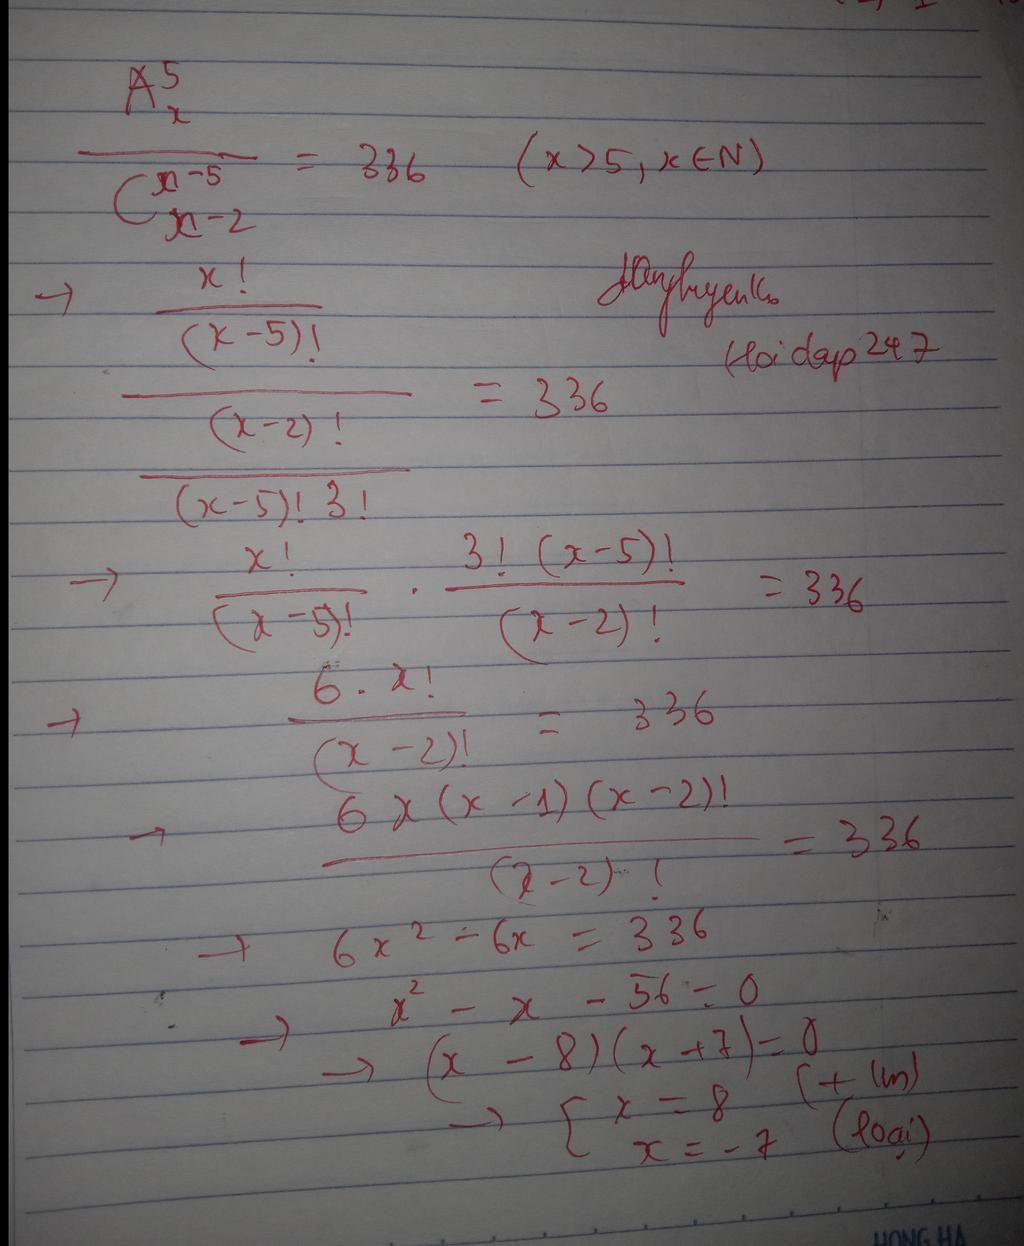 A_x^5 / C_{x-2}^{x-5} = 336 (x>5, x∈N)
→ x! / (x-5)! / (x-2)! / (x-5)! 3! = 336
Hoidap247
→ x! / (x-5)! . 3! (x-5)! / (x-2)! = 336
→ 6. x! / (x-2)! = 336
→ 6x(x-1)(x-2)! / (x-2)! = 336
→ 6x² - 6x = 336
→ x² - x - 56 = 0
→ (x - 8)(x+7) = 0
→ [ x = 8 (t/m)
x = -7 (loại)
HONG HA